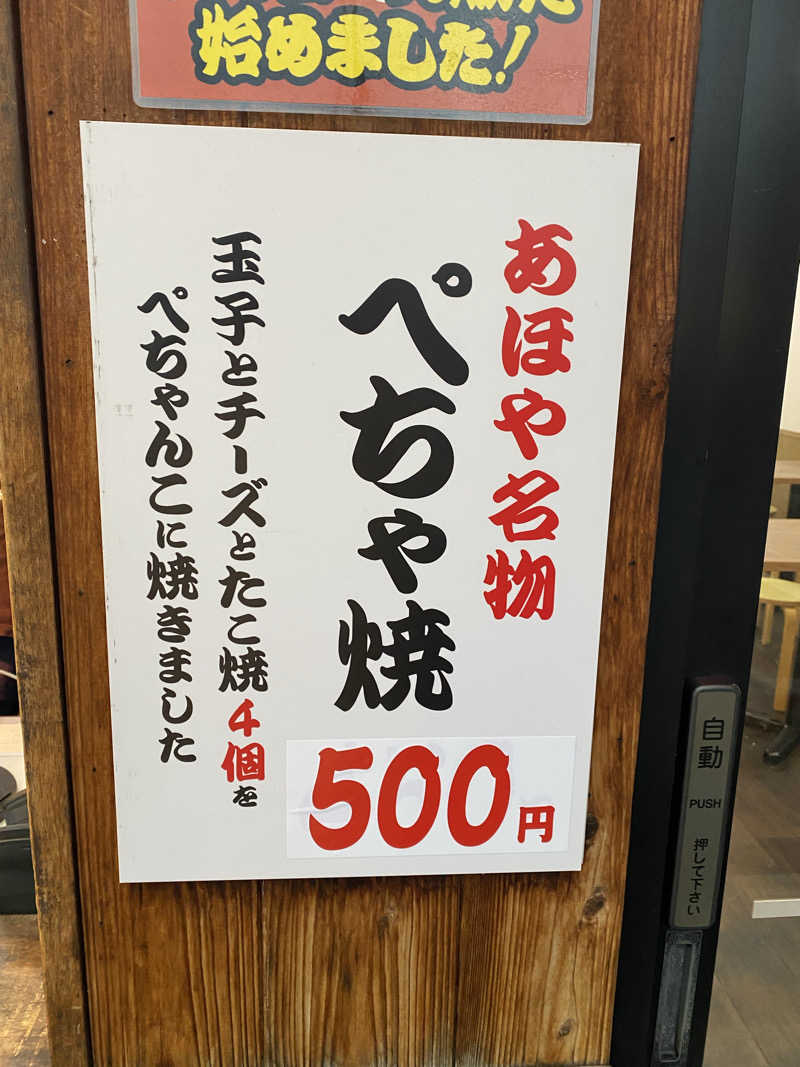 始めました!
あほや名物
ぺちゃ焼
500円
玉子とチーズとたこ焼4個を
ぺちゃんこに焼きました
自動
PUSH
押して下さい